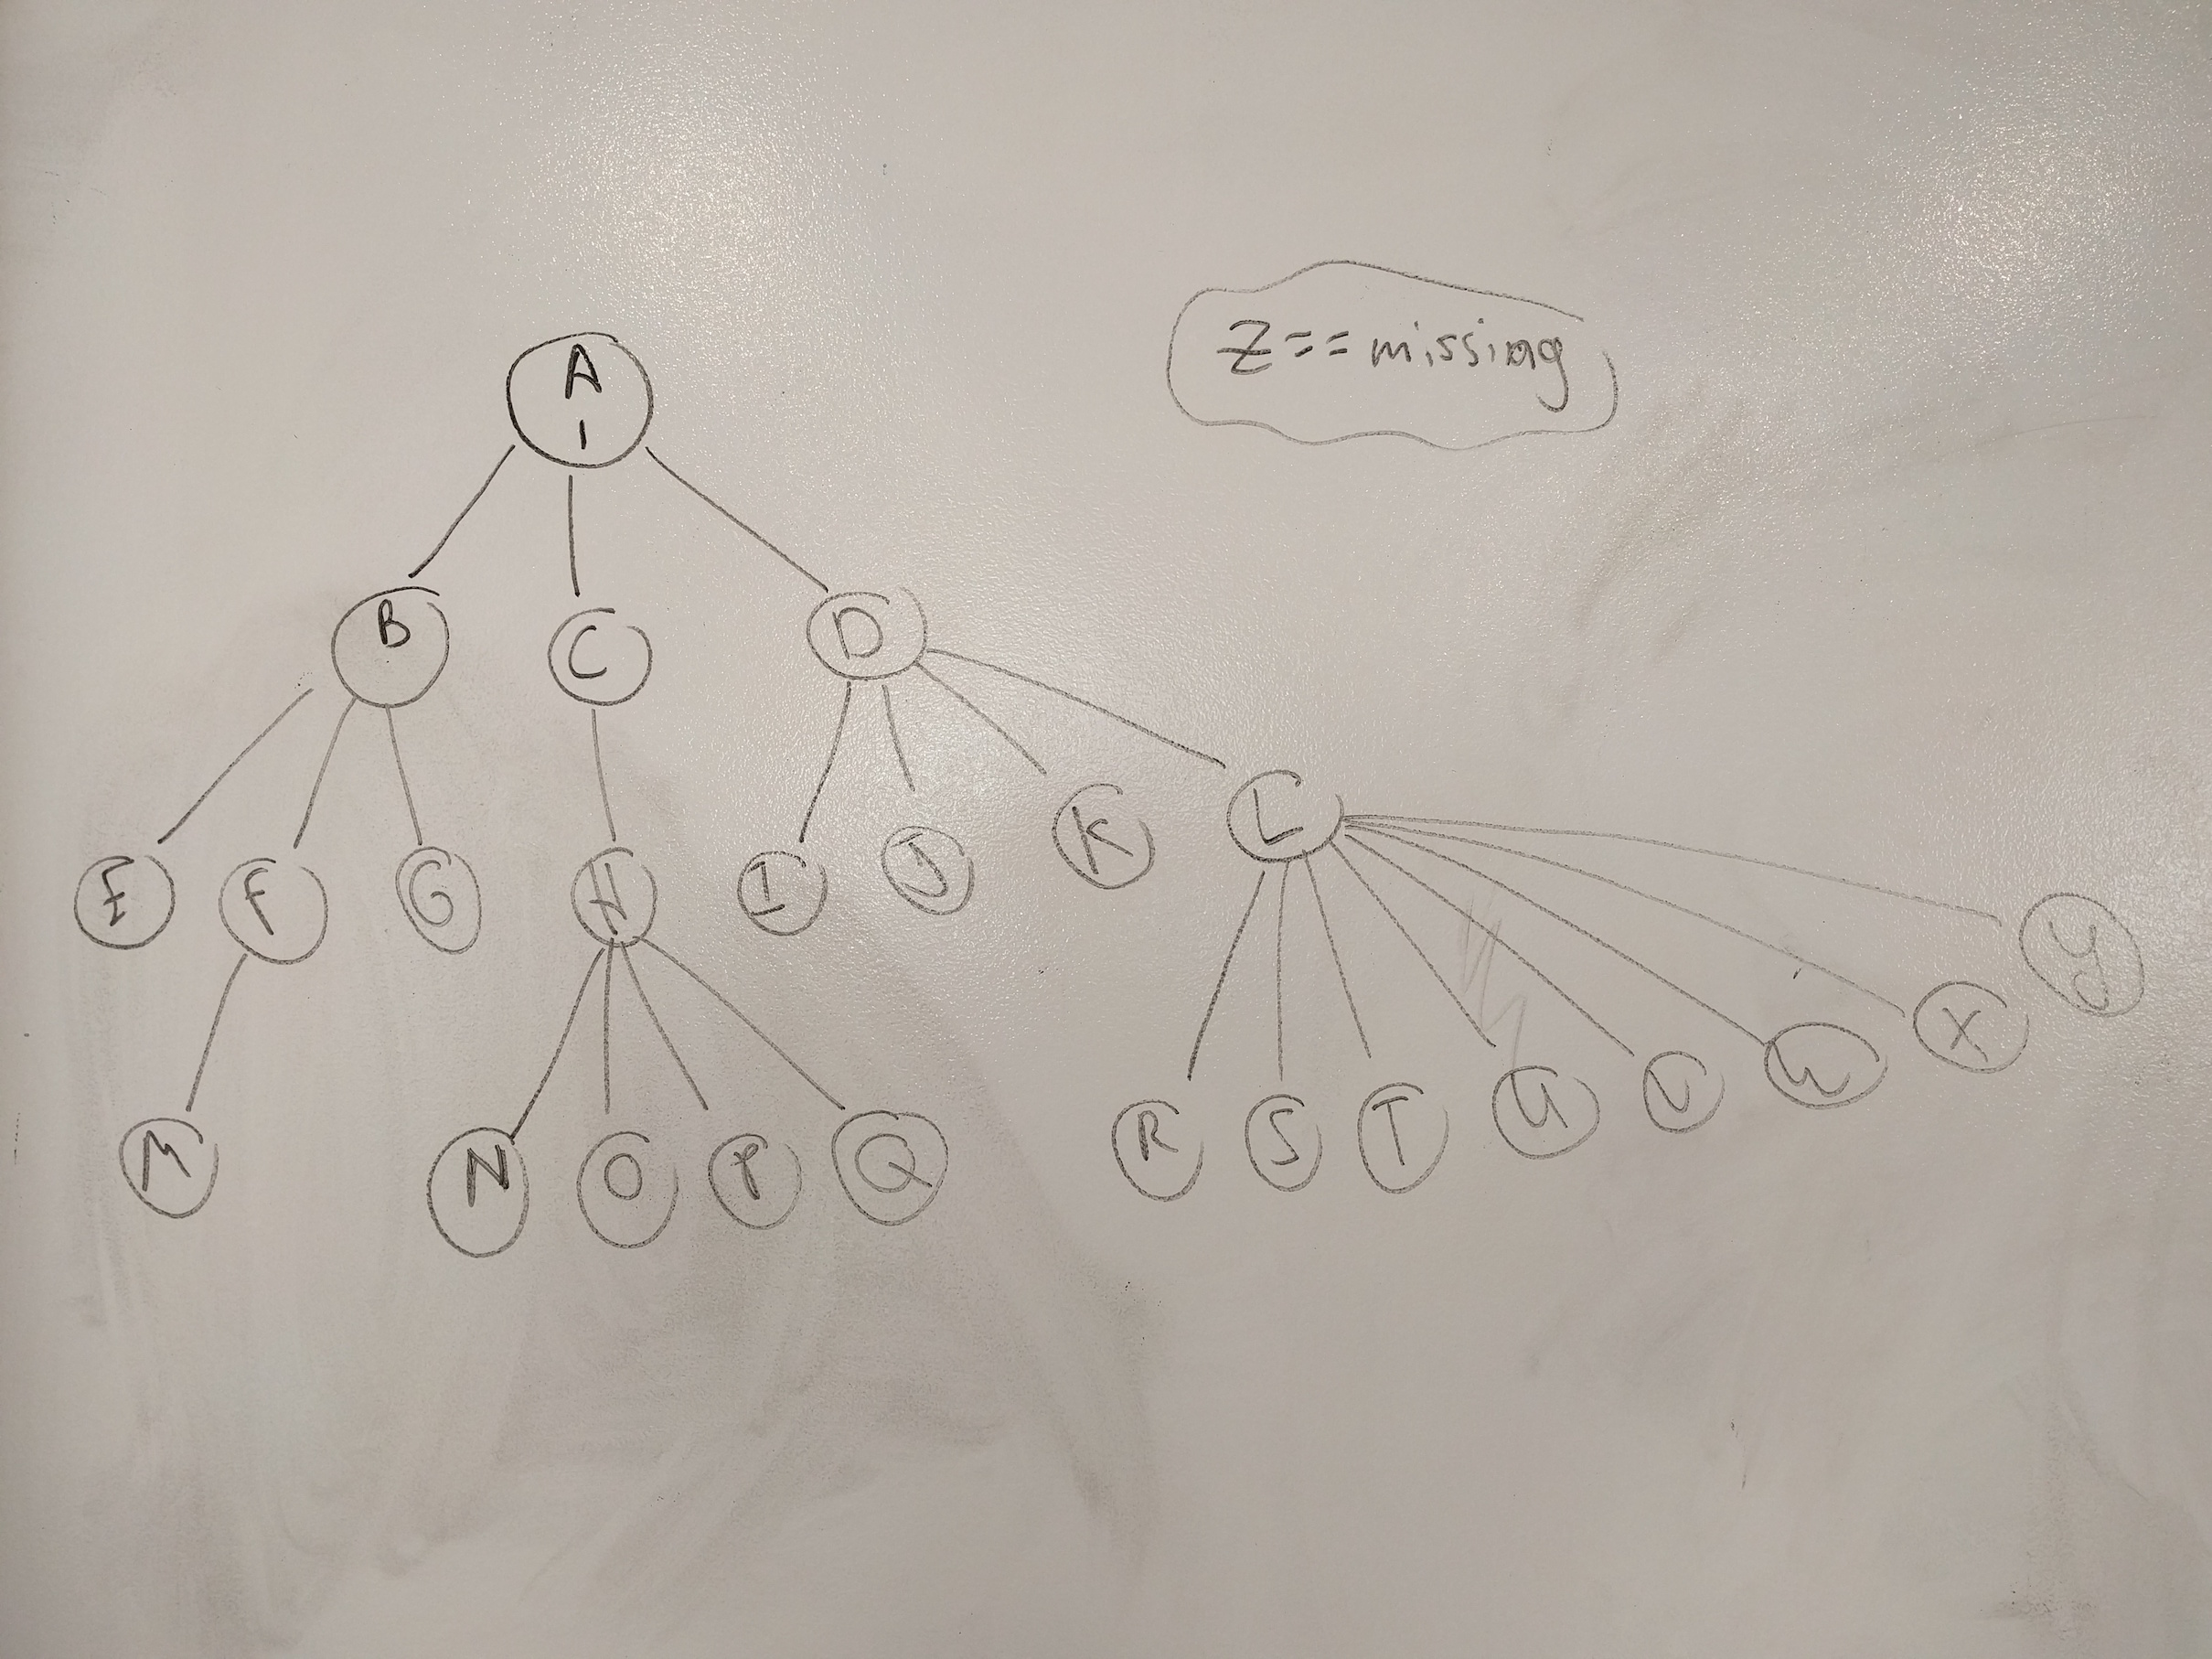 A
1
Z== missing
B
C
D
E
F
G
H
I
J
K
L
M
N
O
P
Q
R
S
T
U
V
W
X
Y